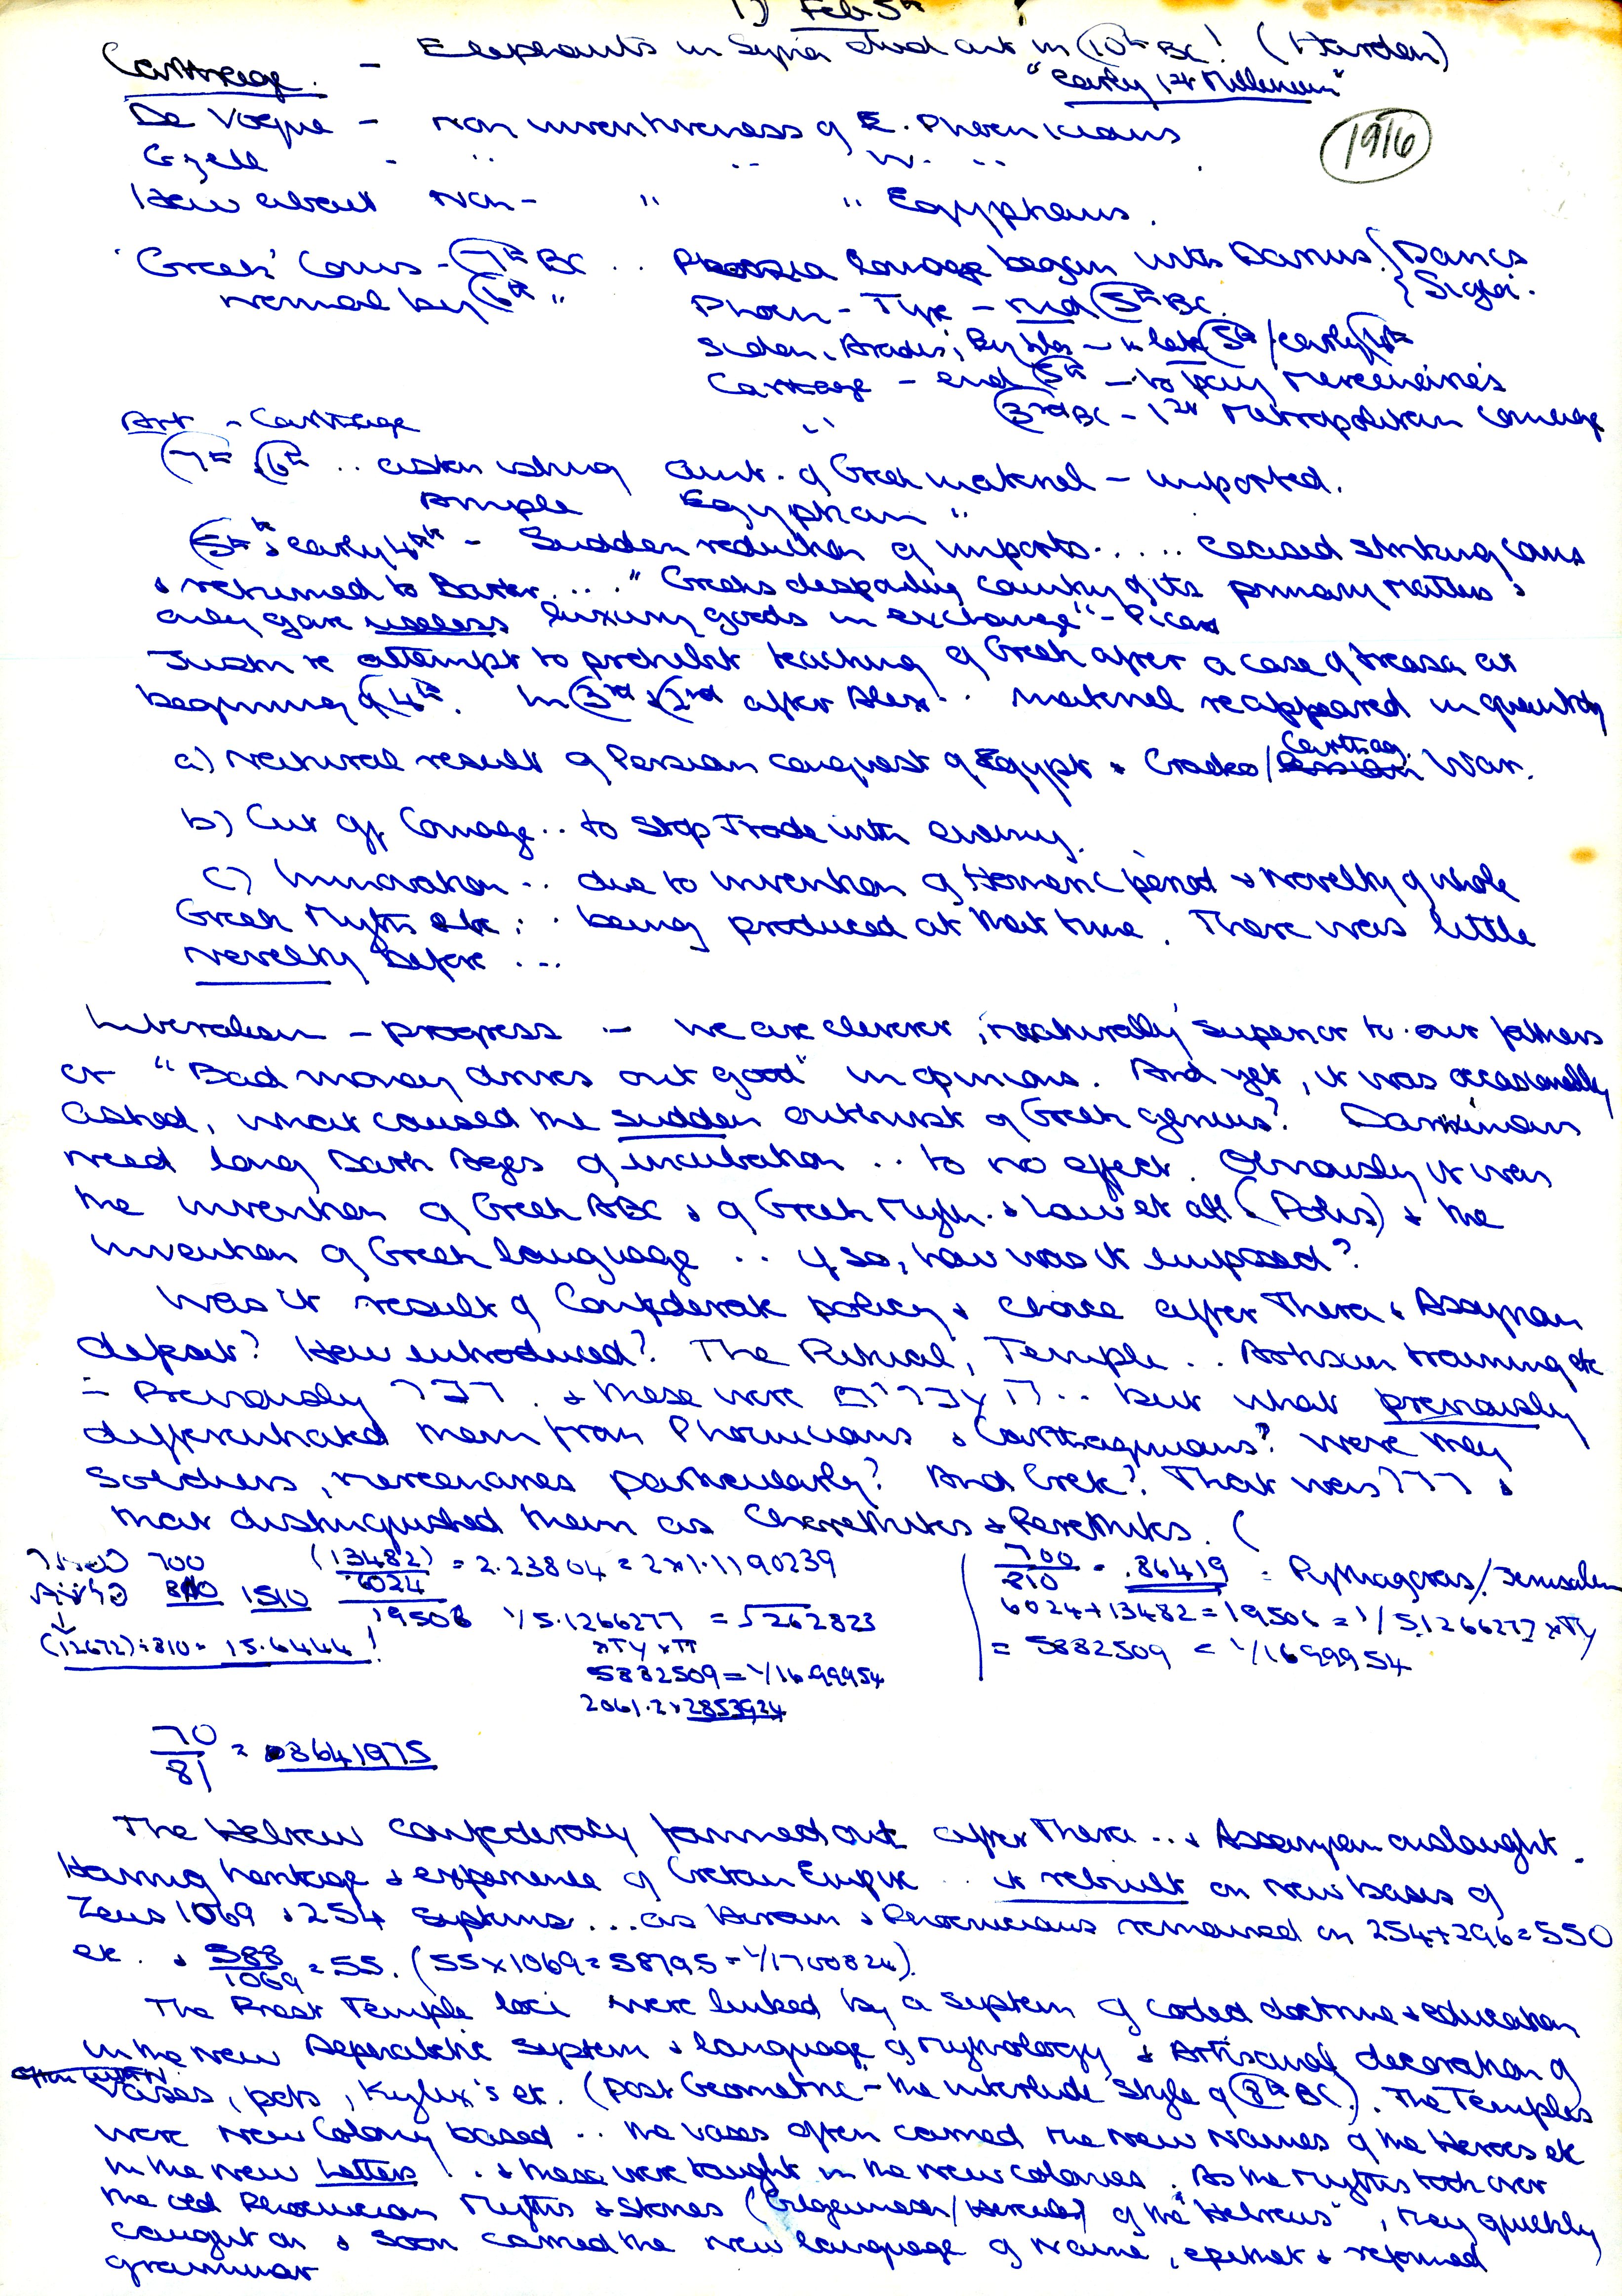 1) Feb 5th
Carthage. - Elephants in Syria died out in 10th BC! (Harden)
"early 1st Millenium"
De Vogue - non inventiveness of E. Phoenicians
1916
Gzell - " " W. " .
How about non- " " Egyptians.
'Greek' Coins - 7th BC .. Persia Coinage began with Darius. } Darics
normal by 6th " } Sigloi.
Phoen - Tyre - mid 5th BC.
Sidon, Arados, Byblos - in late 5th / early 4th
Carthage - end 5th - to pay Mercenaries
" 3rd BC - 1st Metropolitan Coinage
Art - Carthage
7th 6th .. astonishing amt. of Greek material - imported.
Ample Egyptian "
5th & early 4th - Sudden reduction of imports..... ceased striking coins
& returned to Barter.... "Greeks despoiling country of its primary matters &
only gave useless luxury goods in exchange" - Picard
Justin re attempt to prohibit teaching of Greek after a case of treason at
beginning of 4th. In 3rd & 2nd after Alex.. material reappeared in quantity
a) Natural result of Persian conquest of Egypt & Graeko / Carthag. War.
b) Cut off Coinage .. to stop Trade with enemy.
c) Innovation .. due to invention of Homeric period & novelty of whole
Greek Myth etc .. being produced at that time. There was little
novelty before ...
- progress - we are cleverer, 'naturally' superior to our fathers
or "Bad money drives out good" in opinions. And yet, it was occasionally
asked, what caused the sudden outburst of Greek genius? Darwinians
need long Dark Ages of incubation .. to no effect. Obviously it was
the invention of Greek ABC & of Greek Myth. & Law et all (Polis) & the
invention of Greek language .. if so, how was it imposed?
Was it result of Confederate policy & choice after Thera & Assyrian
defeat? How introduced? The Ritual, Temple .. Artisan training etc
- Previously & these were .. but what previously
differentiated them from Phoenicians & Carthaginians? Were they
Soldiers, mercenaries particularly? And Crete? That was &
that distinguished them as Cherethites & Perethites. (
700 (13482) = 2.23804 = 2x1.1190239 700/810 = .86419 = Pythagoras/Jerusalem
810 1510 6024
19506 1/5.1266277 = √262823 6024+13482=19506 = 1/5.1266277 xTy
(12672)÷810= 15.6444! xTy xπ = 5882509 = 1/1699954
5882509=1/16.99954
2061.2x2853924
70/81 = .08641975
The Hebrew Confederacy fanned out after Thera .. & Assyrian onslaught.
Having heritage & experience of Cretan Empire .. it rebuilt on new bases of
Zeus 1069 & 254 systems ... as Hiram & Phoenicians remained on 254+296=550
etc. & 588/1069 = 55. (55x1069=58795=1/1700824).
The Priest Temple loci were linked by a system of coded doctrine & education
in the new Alphabetic system & language of mythology & Artisanal decoration of
vases, pots, Kylix's etc. (post Geometric - the interlude style of 8th BC). The Temples
were New Colony based .. the vases often carried the new names of the Heroes etc
in the new Letters! .. & these were taught in the new colonies. As the Myths took over
the old Phoenician Myths & Stories (Gilgamesh/Hercules) of the "Hebrews", they quickly
caught on & soon carried the new language of name, epithet & reformed
grammar